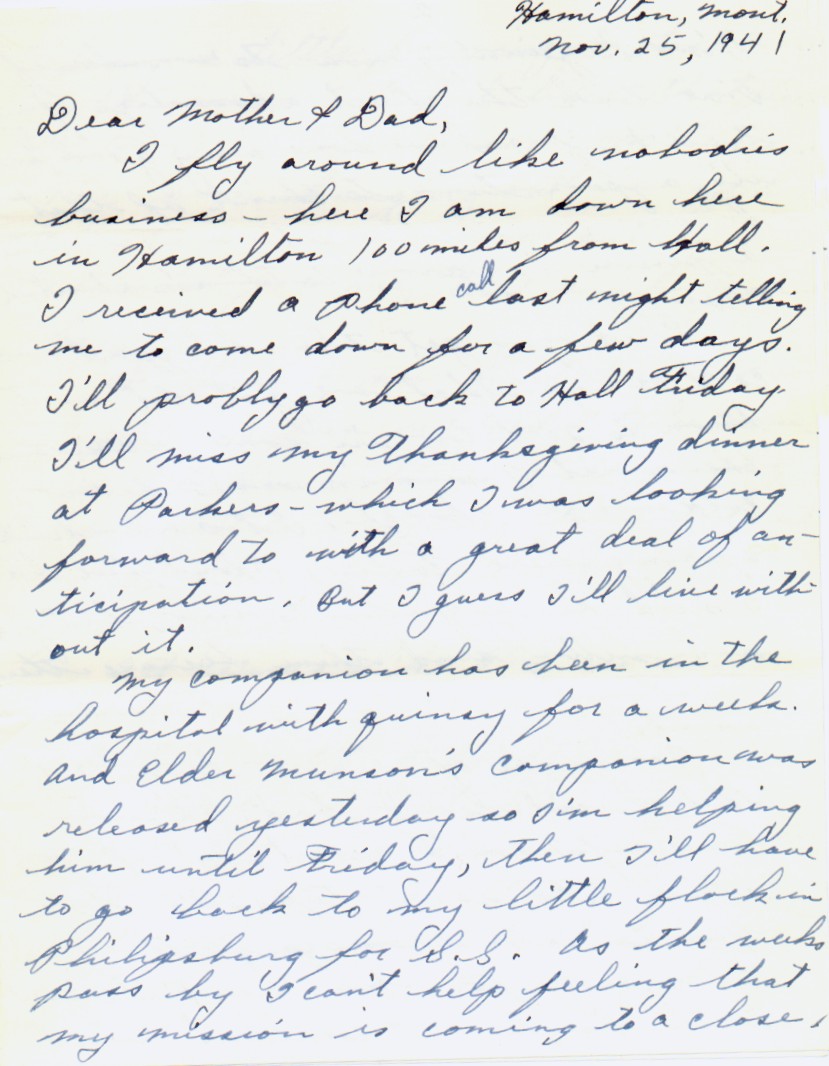 Hamilton, Mont.
Nov. 25, 1941
Dear Mother & Dad,
I fly around like nobodies
business – here I am down here
in Hamilton 100 miles from Hall.
I received a phone call last night telling
me to come down for a few days.
I'll probly go back to Hall Friday.
I'll miss my Thanksgiving dinner
at Parkers – which I was looking
forward to with a great deal of an-
ticipation. But I guess I'll live with-
out it.
My companion has been in the
hospital with quinsy for a week.
And Elder Munson's companion was
released yesterday so I'm helping
him until Friday, then I'll have
to go back to my little flock in
Philipsburg for S.S. As the weeks
pass by I can't help feeling that
my mission is coming to a close,